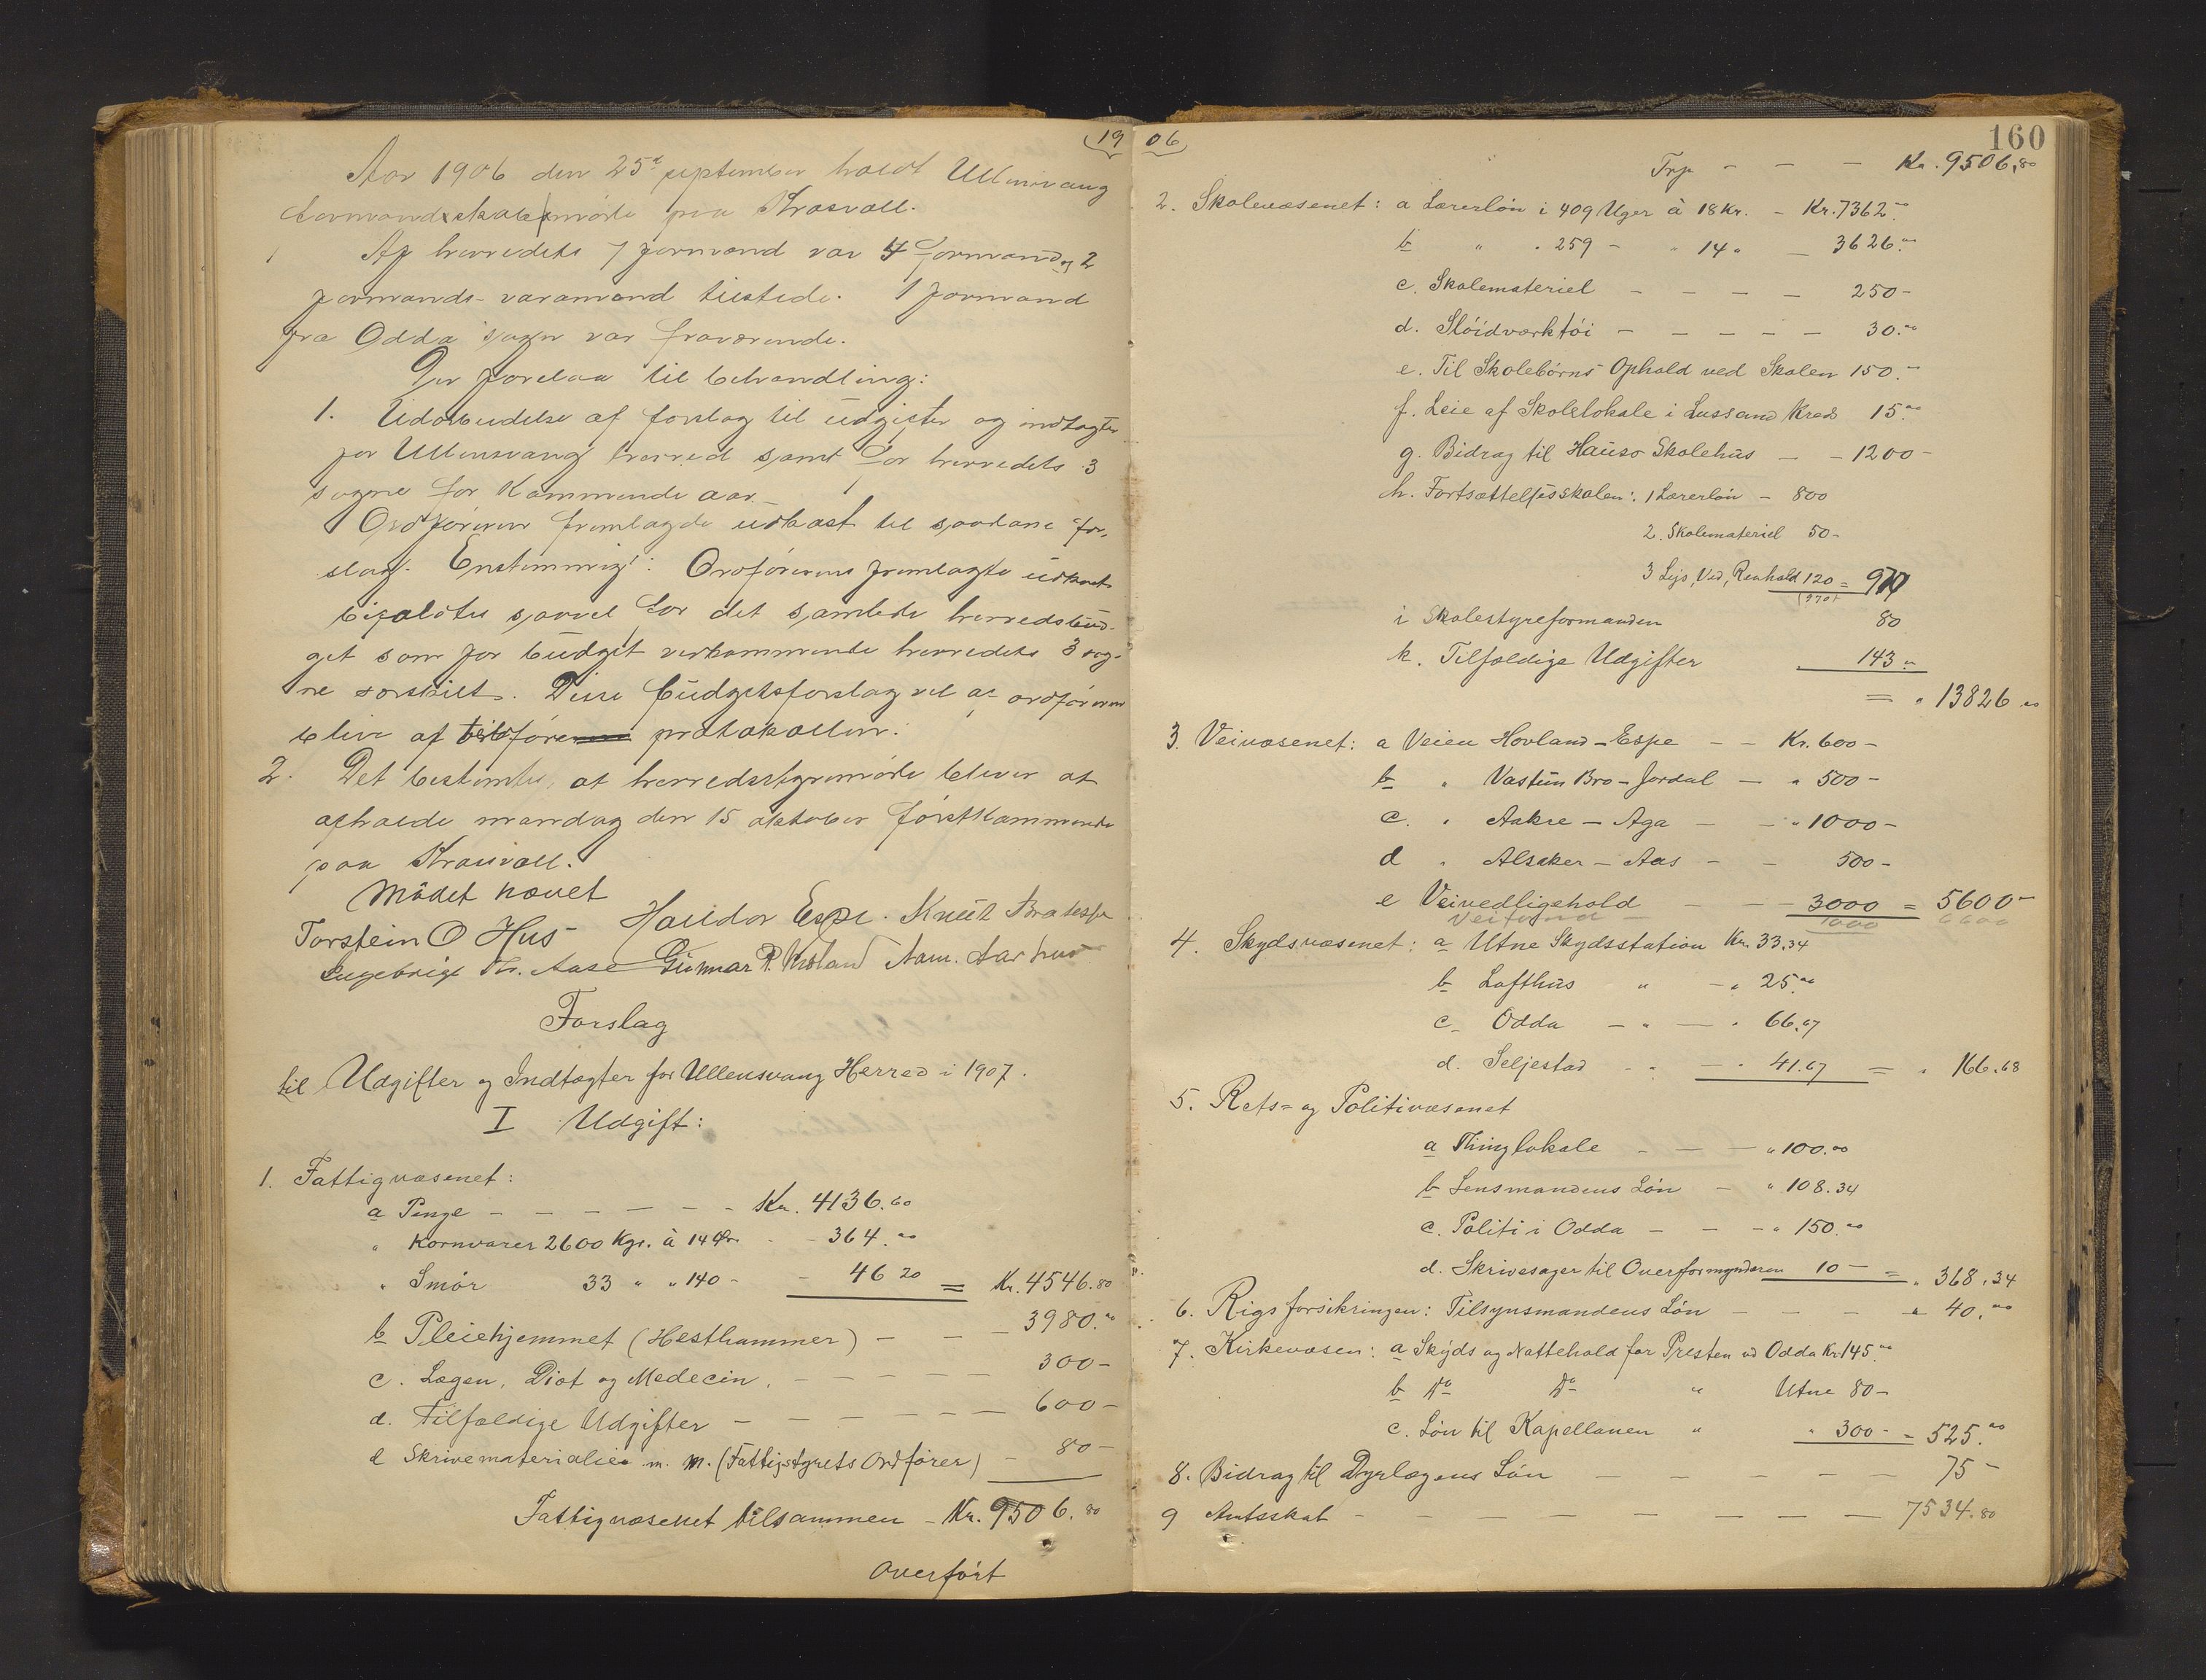 19
Aar 1906 den 25de september holdt Ullensvang
formandsskabsmøde paa Kraavoll.
Af herredets 7 formænd var 4 formænd og 2
formands-varamænd tilstede. 1 formand
fra Odda sogn var fraværende.
Der forelaa til behandling:
1. Udarbeidelse af forslag til udgifter og indtægter
for Ullensvang herred samt for herredets 3
sogne for kommende aar.
Ordføreren fremlagde udkast til saadane for-
slag. Enstemmigt: Ordførerens fremlagte udkast
bifaldtes saavel for det samlede herredsbud-
get som for budget vedkommende herredets 3 sog-
ne særskilt. Disse budgetsforslag vil af ordføreren
blive at tilføre protokollen.
2. Det bestemtes, at herredsstyremøde bliver at
afholde mandag den 15 oktober førstkommende
paa Kraavoll.
Mødet hævet
Torstein O Hus Haldor Espe. Knut Bratespe
Engebrigt Th. Aase Gunnar P. Aam. Aarhus
Forslag
til Udgifter og Indtægter for Ullensvang Herred i 1907.
I Udgift:
1. Fattigvæsenet:
a Penge - - - - - - Kr. 4136.60
" Kornvarer 2600 Kgr. à 14 Øre - - 364.00
" Smør 33 " " 140 - - 46 20 = Kr. 4546.80
b Pleiehjemmet (Hesthammer) - - - 3980.00
c. Lægen, Diæt og Medecin. - - - - - 300-
d. Tilfældige Udgifter - - - - - - 600-
e Skrivematerialier m. m. (Fattigstyrets Ordfører) - 80-
Fattigvæsenet tilsammen - Kr. 9506.80
Overført
06
160
Trp - - - Kr. 9506,80
2. Skolevæsenet: a Lærerløn i 409 Uger à 18 Kr. - Kr. 7362.00
b " " 259 - " 14 " - 3626.00
c. Skolemateriel - - - - 250-
d. Sløidværktøi - - - - - 30.00
e. Til Skolebørns Ophold ved Skolen 150.-
f. Leie af Skolelokale i Lussand Kreds 15.00
g. Bidrag til Hauso Skolehus - - 1200-
h. Fortsættelsesskolen: 1 Lærerløn - 800
2. Skolemateriel 50-
3 Lys, Ved, Renhold 120 = 970
(970)
i Skolestyreformanden 80
k. Tilfældige Udgifter " 143 "
= " 13826.00
3. Veivæsenet: a Veien Hovland - Espe - - Kr. 600-
b " Vastun Bro - Jordal - " 500-
c. " Aakre - Aga - - " 1000-
d " Alsaker - Aas - - 500-
e Veivedligehold - - 3000 = 5600-
Veifond - 1000 6600
4. Skydsvæsenet: a Utne Skydsstation Kr. 33.34
b Lofthus " - " 25.00
c. Odda - " - " 66.67
d. Seljestad - " - " 41.67 = " 166.68
5. Rets= og Politivæsenet
a Thinglokale - - - " 100.00
b Lensmandens Løn - " 108.34
c. Politi i Odda - - - " 150.00
d. Skrivesager til Overformynderen 10- = " 368.34
6. Rigsforsikringen: Tilsynsmandens Løn - - - " 40.00
7. Kirkevæsen: a Skyds og Nattehold for Presten ved Odda Kr. 145.00
b Do Do " Utne 80-
c. Løn til Kapellanen " " 300- = 525.00
8. Bidrag til Dyrlægens Løn - - - - - 75-
9 Amtsskat - - - - - - - - 7534.80